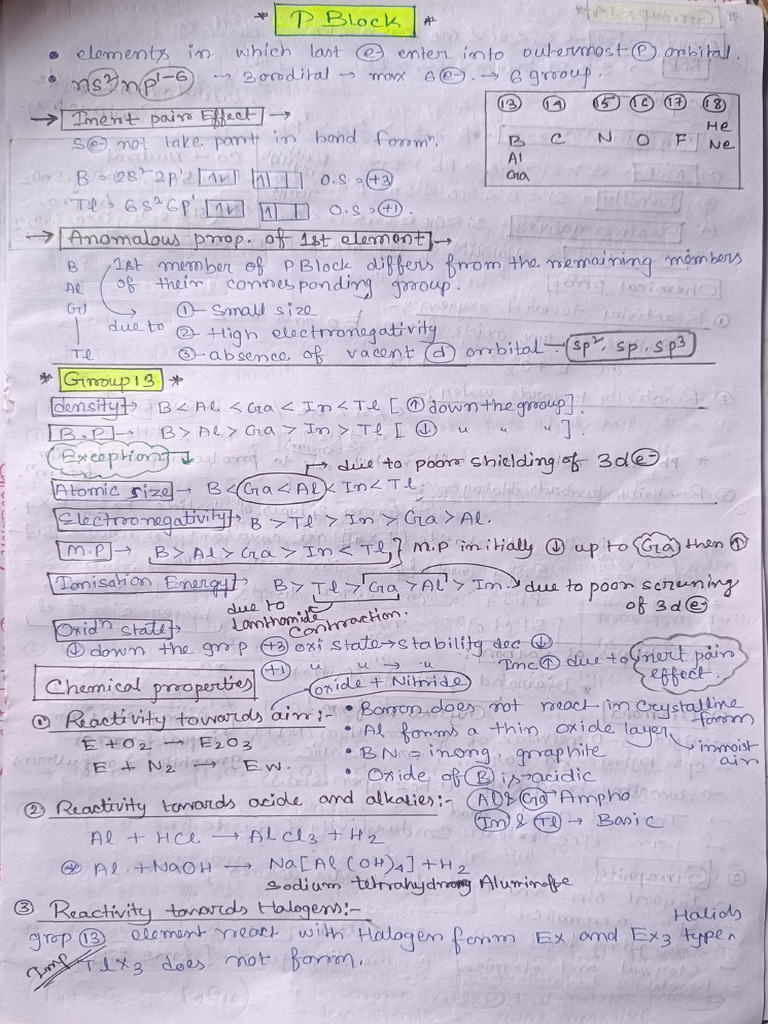 * P Block *
• elements in which last e- enter into outermost p orbital.
• ns² np¹⁻⁶ → 3 orodital → max 6 e-. → 6 group.
→ Inert pair Effect →
S e- not take part in bond formⁿ.
B = 2S² 2p¹ [1v] [1| | ] O.S = +3
Tl = 6s² 6p¹ [1v] [1| | ] O.S = +1.
13 14 15 16 17 18
He
B C N O F Ne
Al
Ga
→ Anomalous prop. of 1st element →
B 1st member of P Block differs from the remaining members
Al of their corresponding group.
Ga ① Small size
due to ② High electronegativity
Tl ③ absence of vacent d orbital. sp², sp, sp³
* Group 13 *
density → B < Al < Ga < In < Tl [↑ down the group].
B.P → B > Al > Ga > In > Tl [↓ " " "].
Exception ↓ → due to poor shielding of 3d e-
Atomic size → B < Ga < Al < In < Tl.
Electronegativity → B > Tl > In > Ga > Al.
M.P → B > Al > Ga > In < Tl } M.P initially ↓ up to Ga then ↑
Ionisation Energy → B > Tl > Ga > Al > In → due to poor screening
of 3d e-
due to Lanthamide contraction.
Oxidⁿ state →
↓ down the grop +3 oxi state → stability dec ↓
+1 " " → " Inc ↑ due to inert pair effect.
Chemical properties
oxide + Nitride
① Reactivity towards air :-
• Boron does not react in Crystalline form
E + O₂ → E₂O₃
• Al forms a thin oxide layer in moist air
E + N₂ → EN.
• BN = inorg graphite
• Oxide of B is → acidic
Al & Ga → Ampho
In & Tl → Basic
② Reactivity towards acide and alkalies:-
Al + HCl → AlCl₃ + H₂
* Al + NaOH → Na[Al(OH)₄] + H₂
Sodium tetrahydroxy Aluminate
③ Reactivity towards Halogens:-
grop 13 element react with Halogen form Ex and Ex₃ type Halids
Imp TlX₃ does not form.